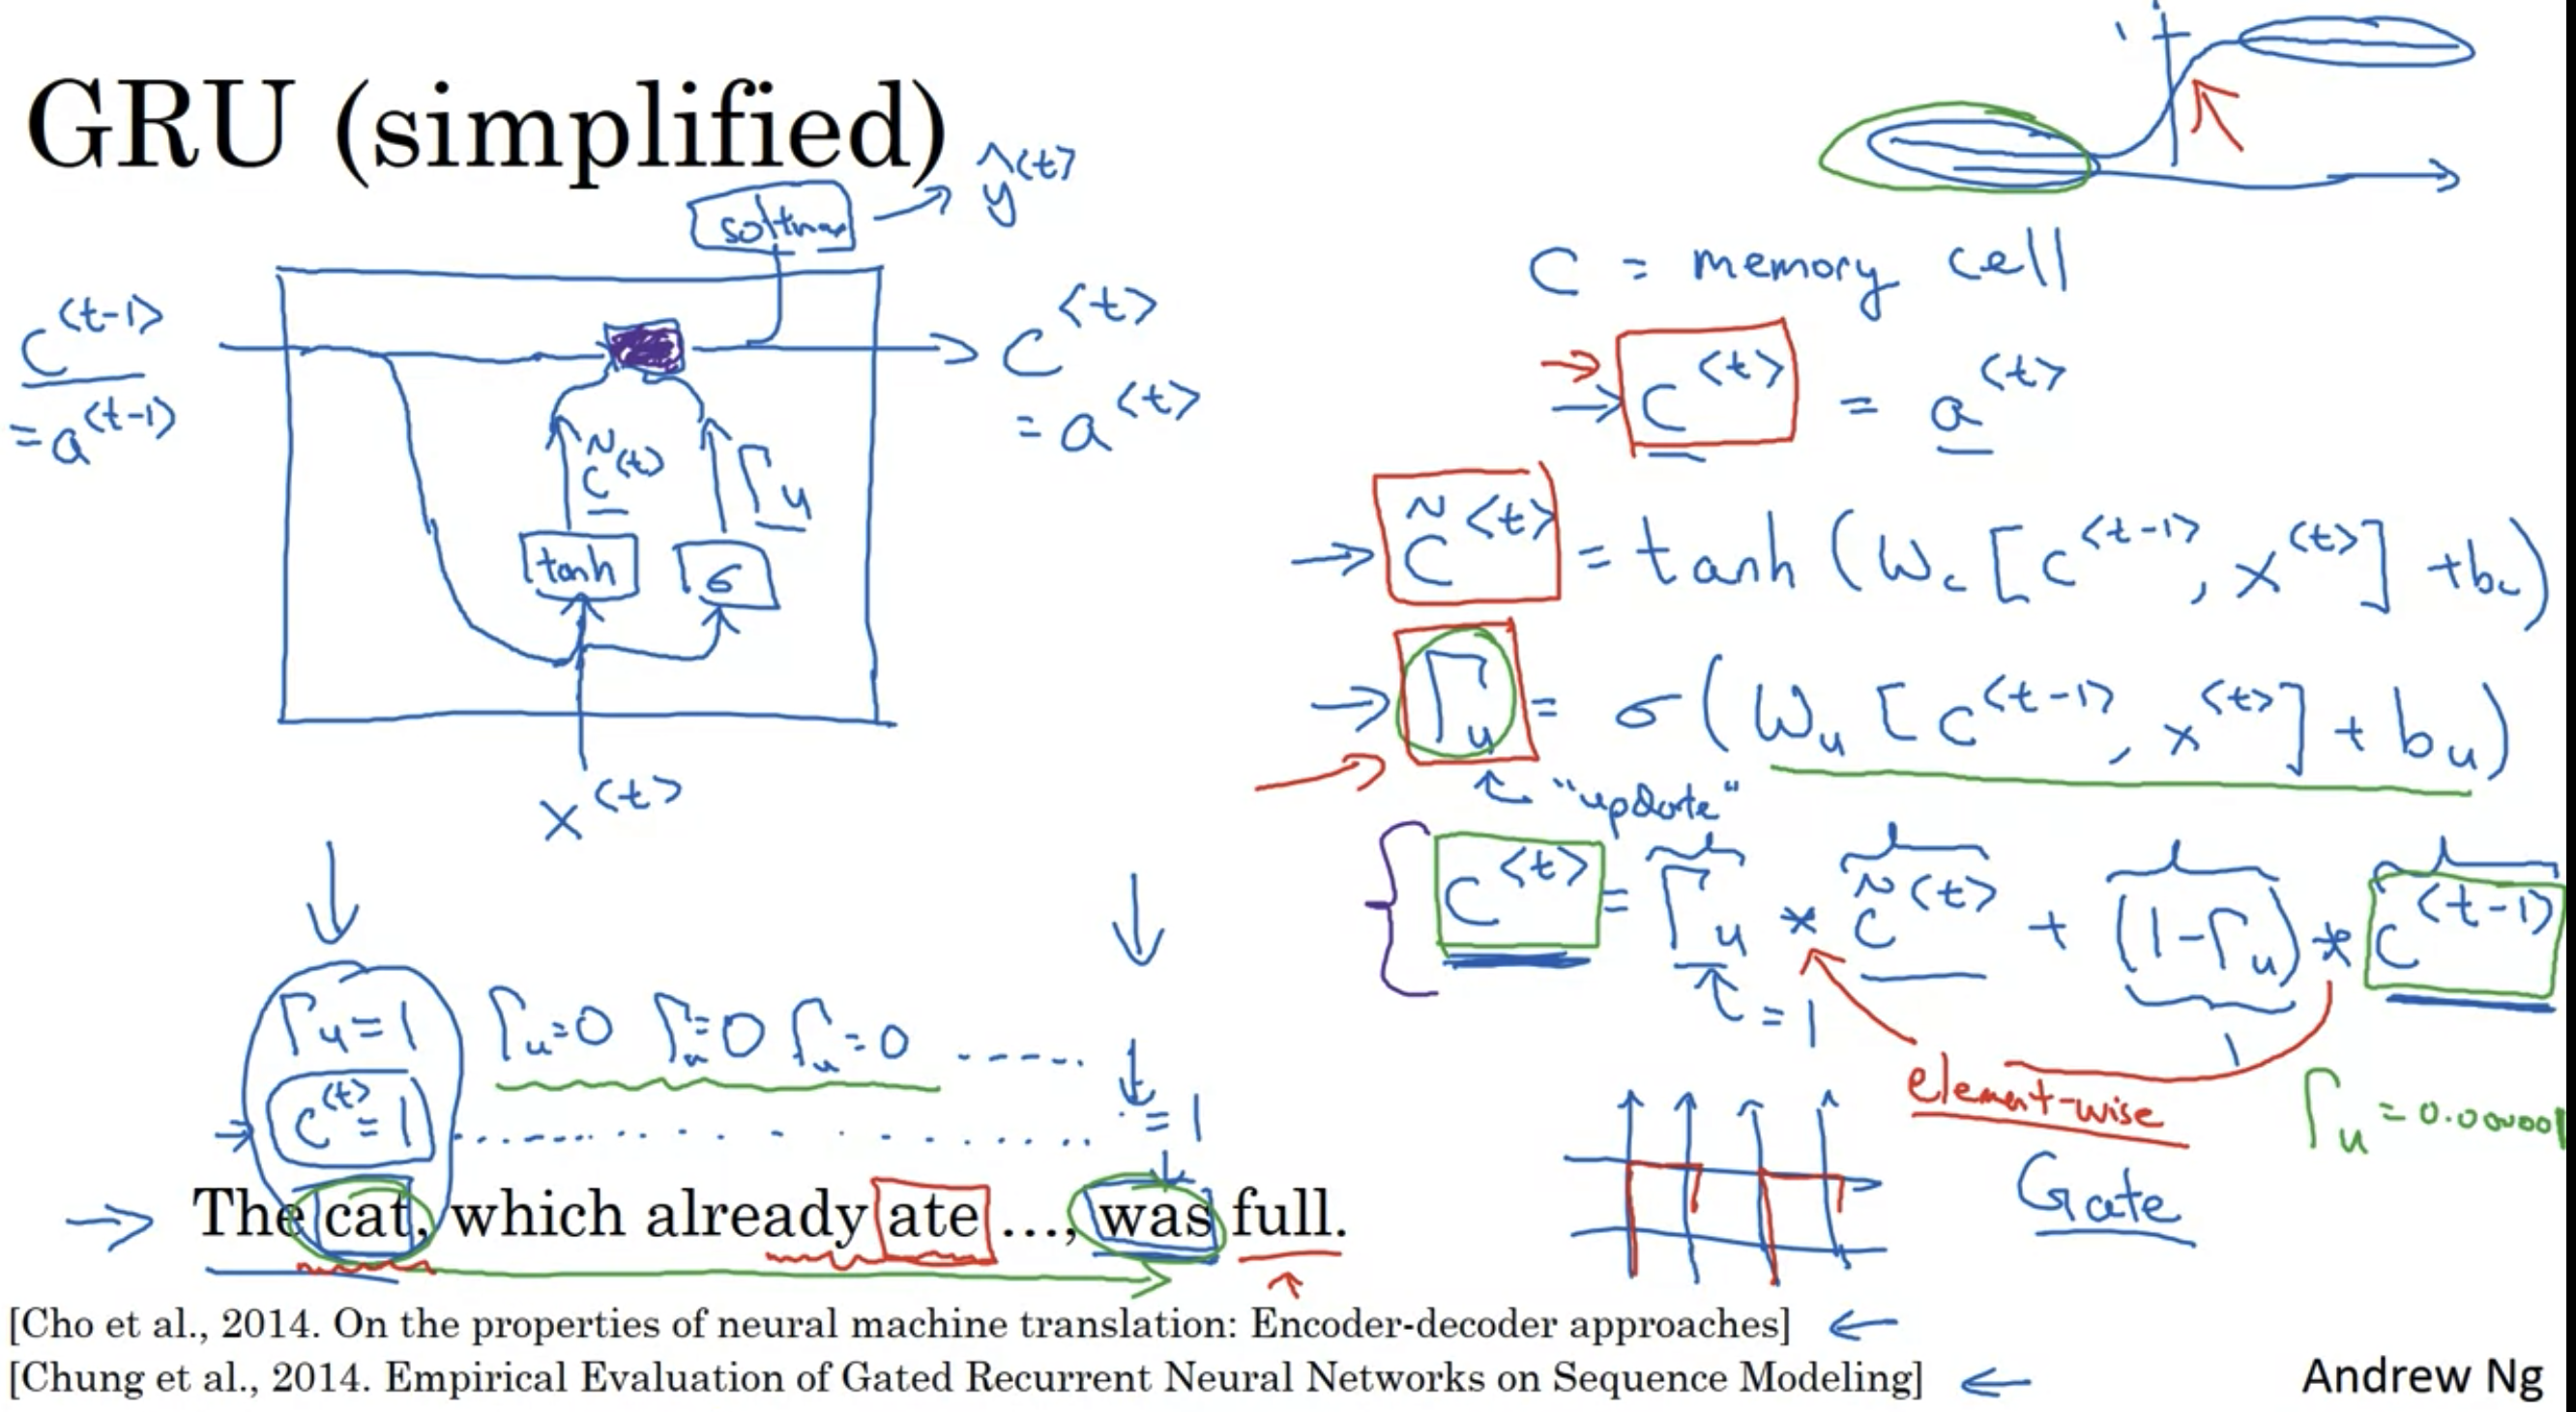 GRU (simplified)
softmax → ŷ^<t>
c^<t-1>
= a^<t-1>
c^<t>
= a^<t>
c̃^<t>
Γ_u
tanh
σ
x^<t>
1
C = memory cell
→ → c^<t> = a^<t>
→ c̃^<t> = tanh (W_c [c^<t-1>, x^<t>] + b_c)
→ Γ_u = σ (W_u [c^<t-1>, x^<t>] + b_u)
"update"
c^<t> = Γ_u * c̃^<t> + (1-Γ_u) * c^<t-1>
= 1
element-wise
Γ_u = 0.000001
Gate
Γ_u=1 Γ_u=0 Γ_u=0 Γ_u=0 -----
c^<t>=1 ........ = 1
The cat, which already ate ..., was full.
[Cho et al., 2014. On the properties of neural machine translation: Encoder-decoder approaches] ←
[Chung et al., 2014. Empirical Evaluation of Gated Recurrent Neural Networks on Sequence Modeling] ←
Andrew Ng